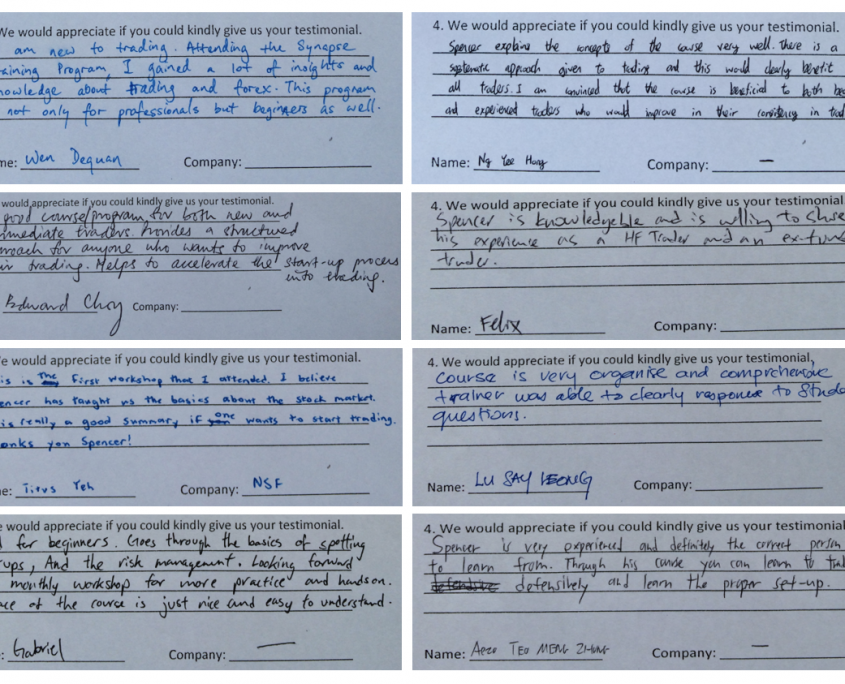 We would appreciate if you could kindly give us your testimonial.
am new to trading. Attending the Synapse
aining Program, I gained a lot of insights and
nowledge about trading and forex. This program
not only for professionals but beginners as well.
me: Wen Dequan Company:
4. We would appreciate if you could kindly give us your testimonial.
Spencer explains the concepts of the course very well. There is a
systematic approach given to trading and this would clearly benefit
all traders. I am convinced that the course is beneficial to both be
and experienced traders who would improve in their consistency in trad
Name: Ng Yee Hong Company: —
would appreciate if you could kindly give us your testimonial.
good course/program for both new and
mediate traders. Provides a structured
roach for anyone who wants to improve
ir trading. Helps to accelerate the start-up process
into trading.
Edward Choy Company:
4. We would appreciate if you could kindly give us your testimonial
Spencer is knowledgeble and is willing to share
his experience as a HF Trader and an ex-fund
trader.
Name: Felix Company:
e would appreciate if you could kindly give us your testimonial.
is is The First workshop that I attended. I believe
encer has taught us the basics about the stock market.
is really a good summary if one wants to start trading.
anks you Spencer!
e: Titus Yeh Company: NSF
4. We would appreciate if you could kindly give us your testimonial,
Course is very organise and comprehensive
trainer was able to clearly response to Stude
questions.
Name: LU SAY LEONG Company:
e would appreciate if you could kindly give us your testimonial.
d for beginners. Goes through the basics of spotting
ups, And the risk management. Looking forward
monthly workshop for more practice and handson.
ace of the course is just nice and easy to understand.
: Gabriel Company: —
4. We would appreciate if you could kindly give us your testimonial
Spencer is very experienced and definitely the correct person
to learn from. Through his course you can learn to trad
defensively and learn the proper set-up.
Name: TEO MENG Company: —